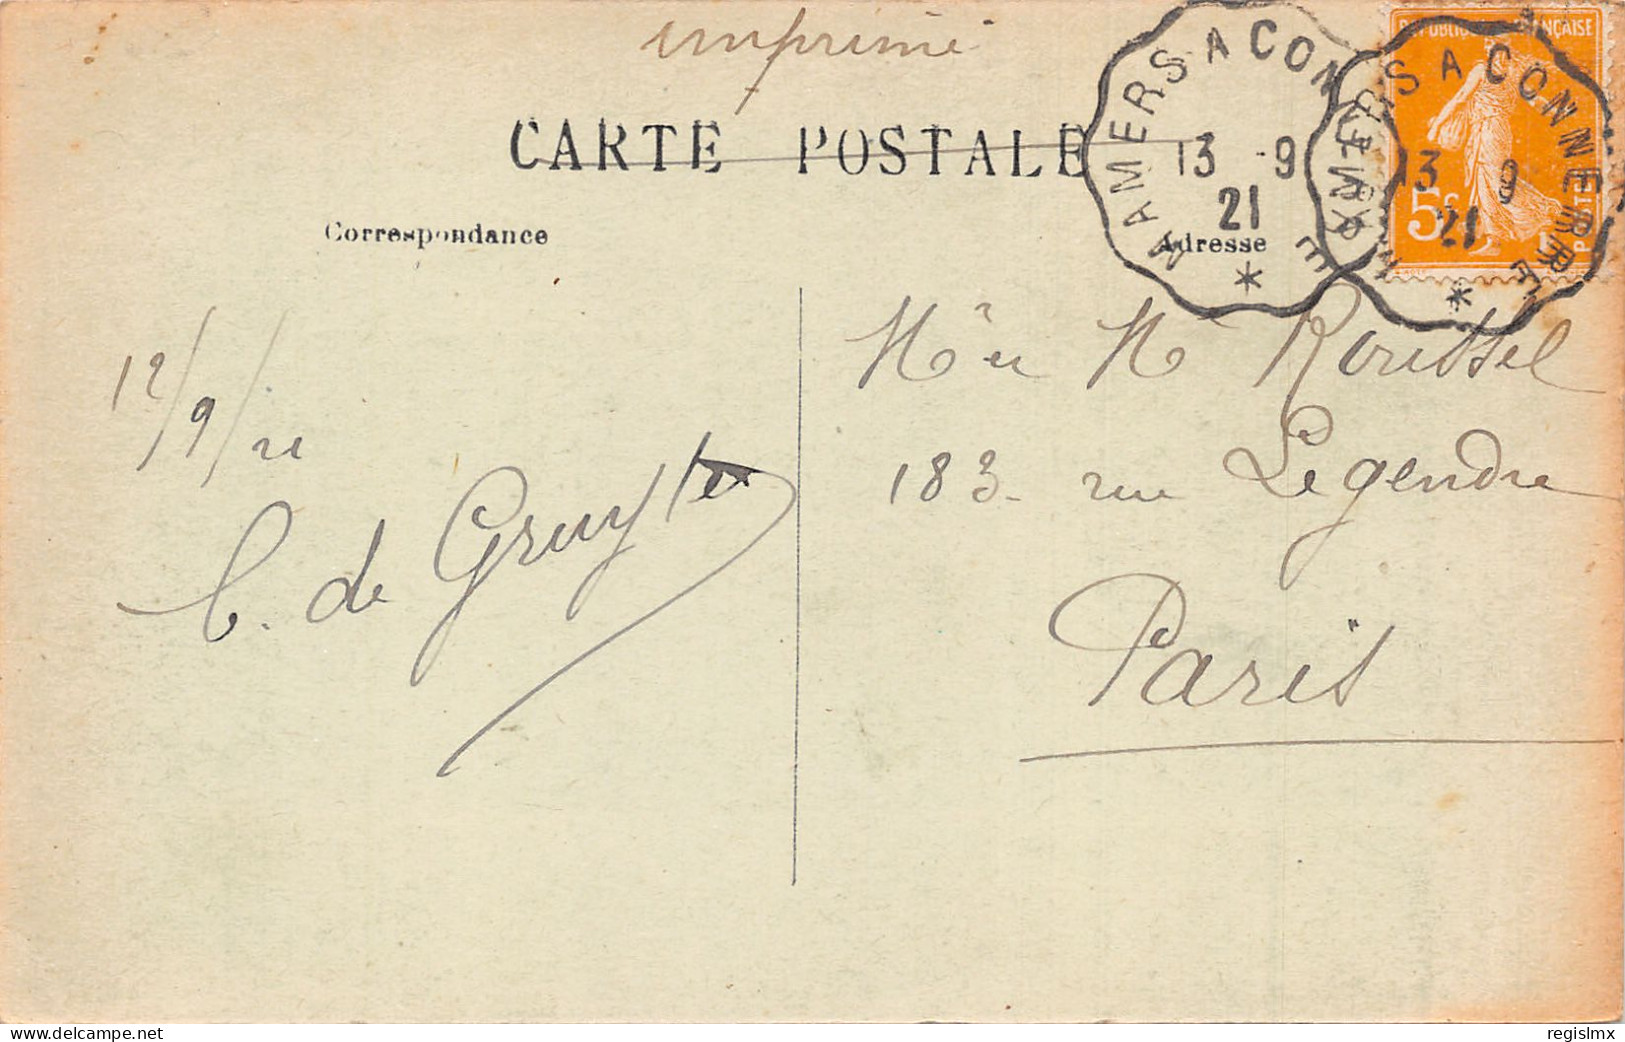 imprimé
CARTE POSTALE
Correspondance
Adresse
MAMERS A CONNERRE
13 -9
21
*
MAMERS A CONNERRE
13 9
21
*
REPUBLIQUE FRANÇAISE
5c
POSTES
12/9/21
C. de Gruyter
Roussel
183 rue Legendre
Paris
www.delcampe.net
regislmx